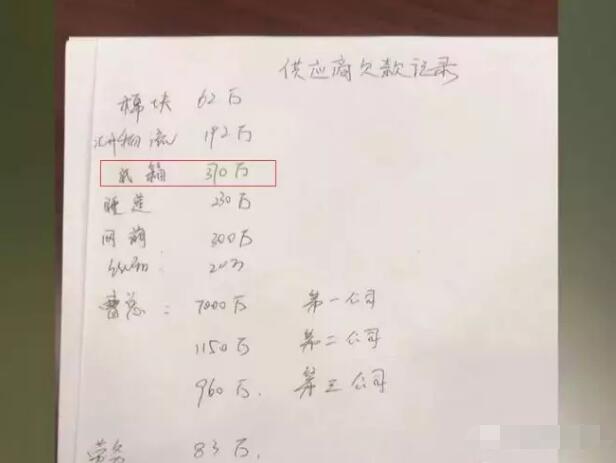 供应商欠款记录
棉块 62万
汇升物流 192万
纸箱 370万
睡莲 230万
网萌 300万
20万
曹总: 7000万 第一公司
1150万 第二公司
960万. 第三公司
劳务 83万.